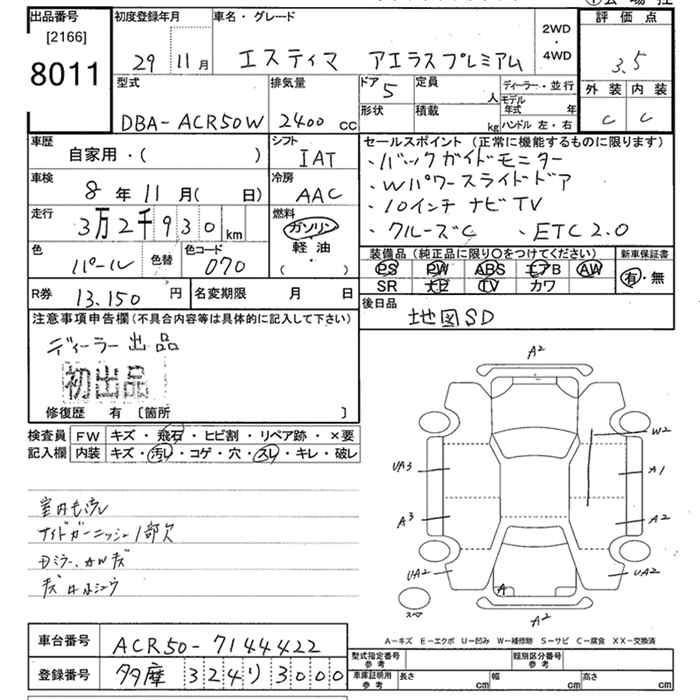 出品番号
[2166]
8011
初度登録年月
29 11月
車名・グレード
エスティマ アエラスプレミアム
2WD
・
4WD
評価点
3.5
外装 内装
C C
型式
DBA-ACR50W
排気量
2400 cc
ドア 5
形状
定員 人
積載 kg
ディーラー・並行
モデル年式 年
ハンドル 左・右
車歴
自家用・( )
シフト
IAT
車検
8年11月( 日)
冷房
AAC
走行
3万2千930km
燃料
ガソリン
軽油
( ・ )
色
パール
色替
色コード
070
R券 13,150円
名変期限 月 日
セールスポイント (正常に機能するものに限ります)
・バックガイドモニター
・Wパワースライドドア
・10インチ ナビTV
・クルーズC 、ETC2.0
装備品 (純正品に限り○をつけてください)
PS PW ABS エアB AW
SR ナビ TV カワ
新車保証書
有・無
後日品
地図SD
注意事項申告欄 (不具合内容等は具体的に記入して下さい)
ディーラー出品
初出品
修復歴 有 〔箇所 〕
検査員
記入欄
FW キズ・飛石・ヒビ割・リペア跡・×要
内装 キズ・汚レ・コゲ・穴・スレ・キレ・破レ
サイドガーニッシュ1部欠
A2
W2
UA3
A1
A3
A2
UA2
A
UA2
スペア
A2
A-キズ E-エクボ U-凹み W-補修跡 S-サビ C-腐食 XX-交換済
車台番号 ACR50-7144422
登録番号 多摩 324 リ 3000
型式指定番号
参考
類別区分番号
参考
車庫証明用
参考
長さ cm 幅 cm 高さ cm